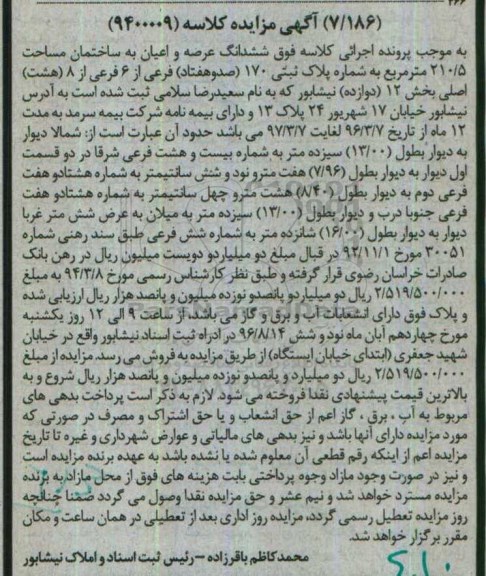 (۷/۱۸۶) آگهی مزایده کلاسه (۹۴۰۰۰۰۹)
به موجب پرونده اجرائی کلاسه فوق ششدانگ عرصه و اعیان به ساختمان مساحت
۲۱۰/۵ مترمربع به شماره پلاک ثبتی ۱۷۰ (صدوهفتاد) فرعی از ۶ فرعی از ۸ (هشت)
اصلی بخش ۱۲ (دوازده) نیشابور که به نام سعیدرضا سلامی ثبت شده است به آدرس
نیشابور خیابان ۱۷ شهریور ۲۴ پلاک ۱۳ و دارای بیمه نامه شرکت بیمه سرمد به مدت
۱۲ ماه از تاریخ ۹۶/۳/۷ لغایت ۹۷/۳/۷ می باشد حدود آن عبارت است از: شمالا دیوار
به دیوار بطول (۱۳/۰۰) سیزده متر به شماره بیست و هشت فرعی شرقا در دو قسمت
اول دیوار به دیوار بطول (۷/۹۶) هفت مترو نود و شش سانتیمتر به شماره هشتادو هفت
فرعی دوم به دیوار بطول (۸/۴۰) هشت مترو چهل سانتیمتر به شماره هشتادو هفت
فرعی جنوبا درب و دیوار بطول (۱۳/۰۰) سیزده متر به میلان به عرض شش متر غربا
دیوار به دیوار بطول (۱۶/۰۰) شانزده متر به شماره شش فرعی طبق سند رهنی شماره
۳۰۰۵۱ مورخ ۹۲/۱۱/۱ در قبال مبلغ دو میلیاردو دویست میلیون ریال در رهن بانک
صادرات خراسان رضوی قرار گرفته و طبق نظر کارشناس رسمی مورخ ۹۴/۳/۸ به مبلغ
۲/۵۱۹/۵۰۰/۰۰۰ ریال دو میلیاردو پانصدو نوزده میلیون و پانصد هزار ریال ارزیابی شده
و پلاک فوق دارای انشعابات آب و برق و گاز می باشد، از ساعت ۹ الی ۱۲ روز یکشنبه
مورخ چهاردهم آبان ماه نود و شش ۹۶/۸/۱۴ در ادراه ثبت اسناد نیشابور واقع در خیابان
شهید جعفری (ابتدای خیابان ایستگاه) از طریق مزایده به فروش می رسد. مزایده از مبلغ
۲/۵۱۹/۵۰۰/۰۰۰ ریال دو میلیارد و پانصدو نوزده میلیون و پانصد هزار ریال شروع و به
بالاترین قیمت پیشنهادی نقدا فروخته می شود. لازم به ذکر است پرداخت بدهی های
مربوط به آب ، برق ، گاز اعم از حق انشعاب و یا حق اشتراک و مصرف در صورتی که
مورد مزایده دارای آنها باشد و نیز بدهی های مالیاتی و عوارض شهرداری و غیره تا تاریخ
مزایده اعم از اینکه رقم قطعی آن معلوم شده یا نشده باشد به عهده برنده مزایده است
و نیز در صورت وجود مازاد وجوه پرداختی بابت هزینه های فوق از محل مازاد به برنده
مزایده مسترد خواهد شد و نیم عشر و حق مزایده نقدا وصول می گردد ضمنا چنانچه
روز مزایده تعطیل رسمی گردد، مزایده روز اداری بعد از تعطیلی در همان ساعت و مکان
مقرر برگزار خواهد شد.
محمدکاظم باقرزاده – رئیس ثبت اسناد و املاک نیشابور